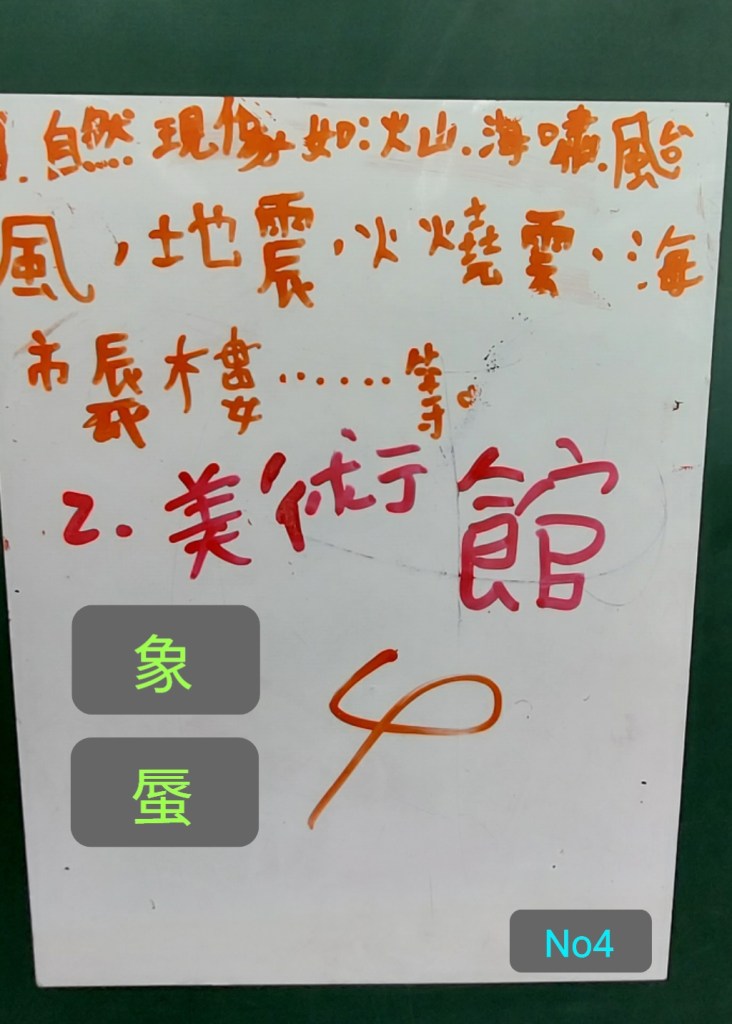 1.自然現像如:火山、海嘯、颱
風,地震,火燒雲、海
市蜃樓......等。
2.美術館
象
蜃
4
No4